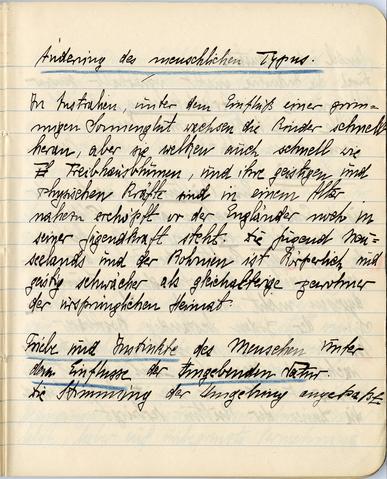 Änderung des menschlichen Typus.
In Australien, unter dem Einfluß einer grim-
migen Sonnenglut wachsen die Kinder schnell
heran, aber sie welken auch schnell wie
Treibhausblumen, und ihre geistigen und
Physischen Kräfte sind in einem Alter
nahezu erschöpft wo der Engländer noch in
seiner Jugendkraft steht. Die Jugend Neu-
seelands und der ist Körperlich und
geistig schwächer als gleichaltrige Bewohner
der ursprünglichen Heimat.
Triebe und Instinkte des Menschen unter
dem Einflusse der Umgebenden Natur.
Die Stimmung der Umgebung angepaßt